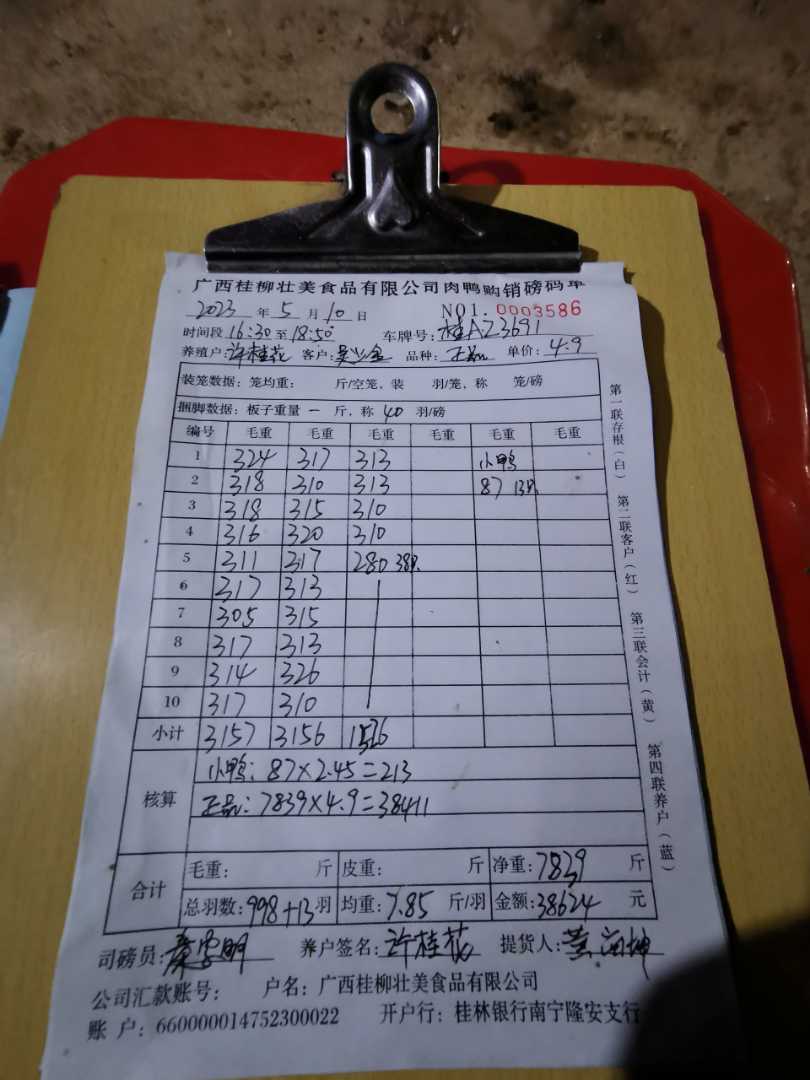 广西桂柳壮美食品有限公司肉鸭购销磅码单
2023 年 5 月 10 日 NO1. 0003586
时间段 16:30 至 18:50 车牌号: 桂A·Z3691
养殖户: 许桂花 客户: 品种: 正品 单价: 4.9
装笼数据: 笼均重: 斤/空笼, 装 羽/笼, 称 笼/磅
捆脚数据: 板子重量 一 斤, 称 40 羽/磅
编号 毛重 毛重 毛重 毛重 毛重 毛重
1 324 317 313 小鸭
2 318 310 313 87 13只
3 318 315 310
4 316 320 310
5 311 317 280 38只
6 317 313
7 305 315
8 317 313
9 314 326
10 317 310
小计 3157 3156 1526
核算
小鸭: 87×2.45=213
正品: 7839×4.9=38411
合计
毛重: 斤 皮重: 斤 净重: 7839 斤
总羽数: 998+13 羽 均重: 7.85 斤/羽 金额: 38624 元
司磅员: 养户签名: 许桂花 提货人:
公司汇款账号: 户名: 广西桂柳壮美食品有限公司
账 户: 660000014752300022 开户行: 桂林银行南宁隆安支行
第一联存根(白)
第二联客户(红)
第三联会计(黄)
第四联养户(蓝)